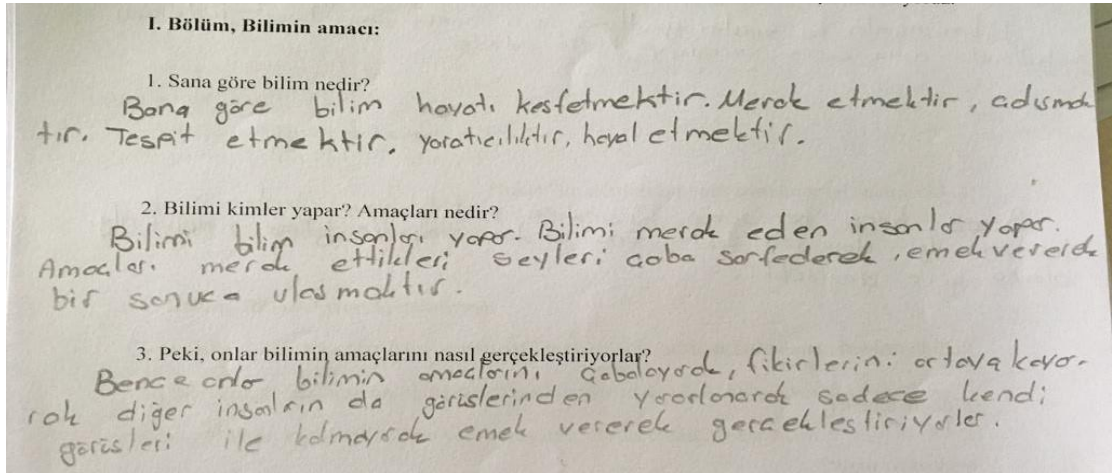 I. Bölüm, Bilimin amacı:
1. Sana göre bilim nedir?
Bana göre bilim hayatı keşfetmektir. Merak etmektir,
tır. Tespit etmektir, yaratıcılıktır, hayal etmektir.
2. Bilimi kimler yapar? Amaçları nedir?
Bilimi bilim insanları yapar. Bilimi merak eden insanlar yapar.
Amaçları merak ettikleri şeyleri çaba sarfederek, emek vererek
bir sonuca ulaşmaktır.
3. Peki, onlar bilimin amaçlarını nasıl gerçekleştiriyorlar?
Bence onlar bilimin amaçlarını çabalayarak, fikirlerini ortaya koya-
rak diğer insanların da görüşlerinden yararlanarak sadece kendi
görüşleri ile kalmayarak emek vererek gerçekleştiriyorlar.